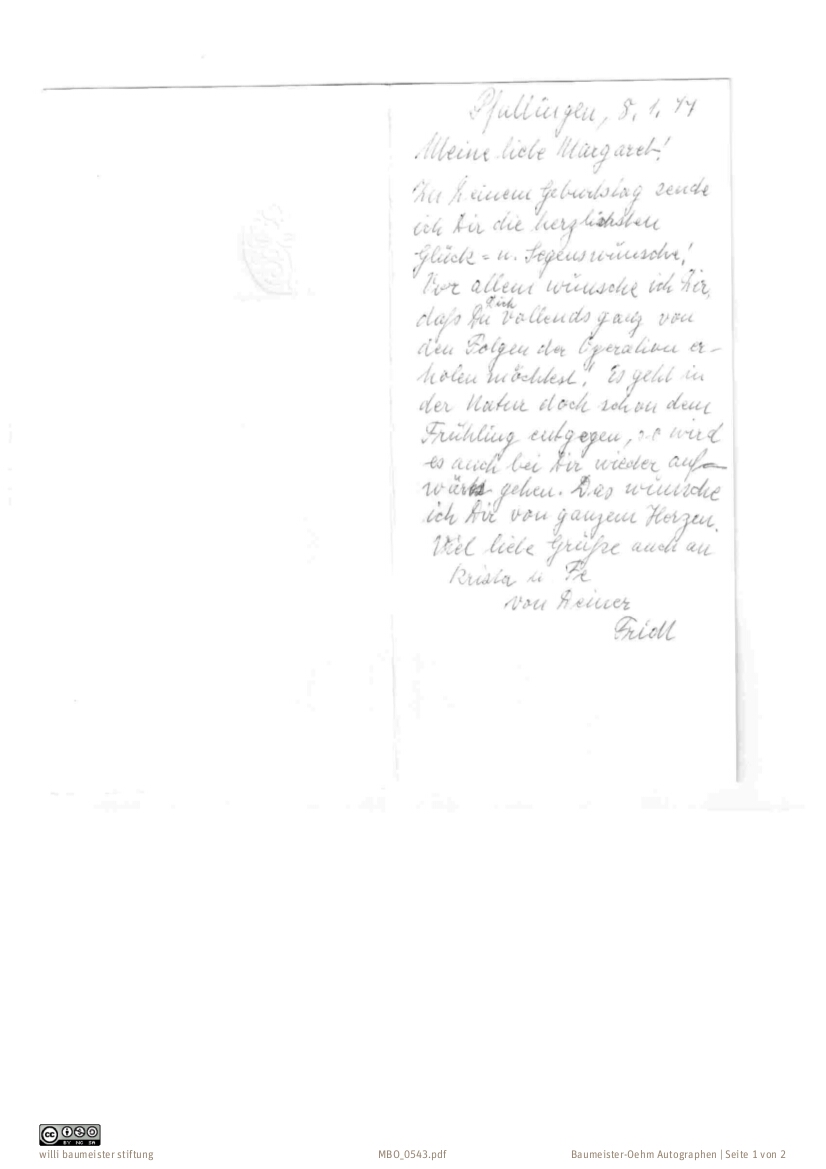 Pfullingen, 8. 1. 44
Meine liebe Margaret!
Zu Deinem Geburtstag sende
ich Dir die herzlichsten
Glück- u. Segenswünsche!
Vor allem wünsche ich Dir,
daß Du Dich vollends ganz von
den Folgen der Operation er-
holen möchtest! Es geht in
der Natur doch schon dem
Frühling entgegen, so wird
es auch bei Dir wieder auf-
wärts gehen. Das wünsche
ich Dir von ganzem Herzen.
Viel liebe Grüße auch an
Krista u. Fe
von Deiner
Fridl
CC BY NC SA
willi baumeister stiftung
MBO_0543.pdf
Baumeister-Oehm Autographen | Seite 1 von 2